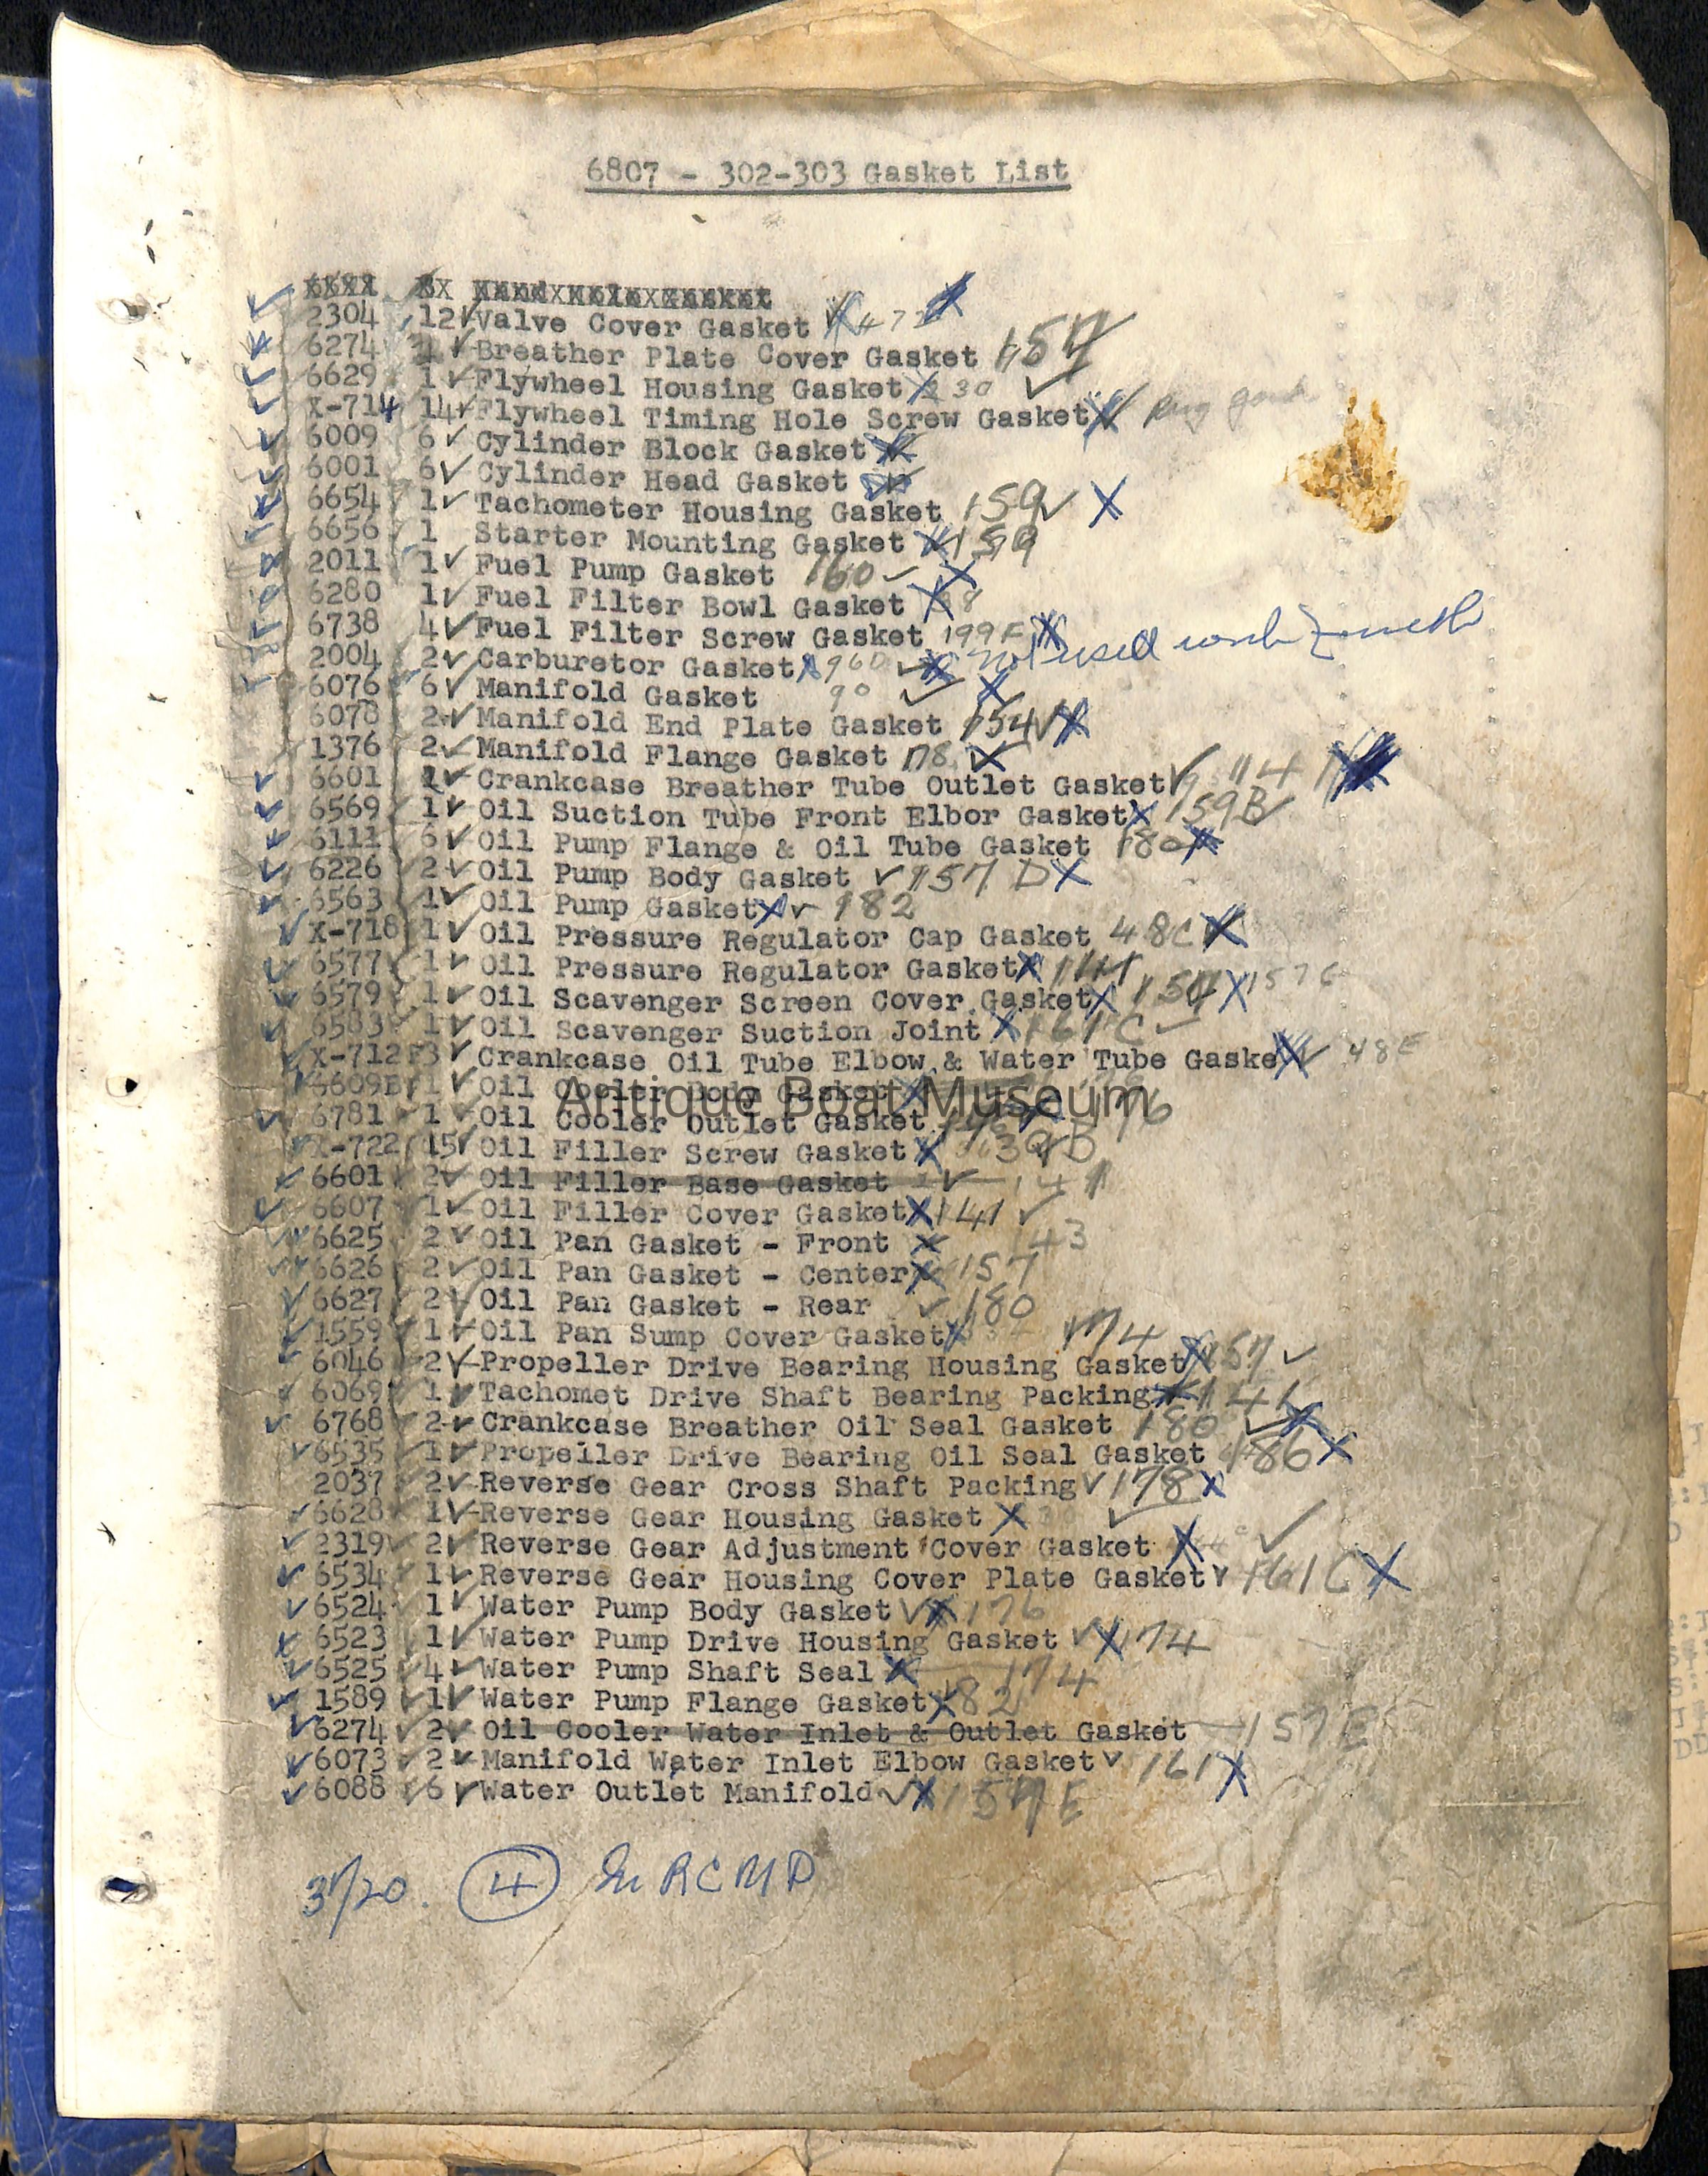 6807 - 302-303 Gasket List
2304 12 Valve Cover Gasket
6274 1 Breather Plate Cover Gasket 157
6629 1 Flywheel Housing Gasket 30
X-714 14 Flywheel Timing Hole Screw Gasket
6009 6 Cylinder Block Gasket
6001 6 Cylinder Head Gasket
6654 1 Tachometer Housing Gasket 159
6656 1 Starter Mounting Gasket 159
2011 1 Fuel Pump Gasket 160
6280 1 Fuel Filter Bowl Gasket
6738 4 Fuel Filter Screw Gasket 199F
2004 2 Carburetor Gasket 96D not used with Zenith
6076 6 Manifold Gasket 90
6078 2 Manifold End Plate Gasket 154
1376 2 Manifold Flange Gasket 178
6601 1 Crankcase Breather Tube Outlet Gasket 114
6569 1 Oil Suction Tube Front Elbor Gasket 159B
6111 6 Oil Pump Flange & Oil Tube Gasket 180
6226 2 Oil Pump Body Gasket 157 D
6563 1 Oil Pump Gasket 182
X-718 1 Oil Pressure Regulator Cap Gasket 48C
6577 1 Oil Pressure Regulator Gasket 141
6579 1 Oil Scavenger Screen Cover Gasket 157E
6583 1 Oil Scavenger Suction Joint 161C
X-712 3 Crankcase Oil Tube Elbow & Water Tube Gasket 48E
6609B 1 Oil Cooler Body Gasket
Antique Boat Museum
6781 1 Oil Cooler Outlet Gasket 176
X-722 15 Oil Filler Screw Gasket 39B
6601 2 Oil Filler Base Gasket 141
6607 1 Oil Filler Cover Gasket 141
6625 2 Oil Pan Gasket - Front 43
6626 2 Oil Pan Gasket - Center 157
6627 2 Oil Pan Gasket - Rear 180
1559 1 Oil Pan Sump Cover Gasket 174
6046 2 Propeller Drive Bearing Housing Gasket 157
6069 1 Tachomet Drive Shaft Bearing Packing 141
6768 2 Crankcase Breather Oil Seal Gasket 180
6535 1 Propeller Drive Bearing Oil Seal Gasket 186
2037 2 Reverse Gear Cross Shaft Packing 178
6628 1 Reverse Gear Housing Gasket
2319 2 Reverse Gear Adjustment Cover Gasket
6534 1 Reverse Gear Housing Cover Plate Gasket 161C
6524 1 Water Pump Body Gasket 176
6523 1 Water Pump Drive Housing Gasket 174
6525 4 Water Pump Shaft Seal 174
1589 1 Water Pump Flange Gasket 182
6274 2 Oil Cooler Water Inlet & Outlet Gasket 157E
6073 2 Manifold Water Inlet Elbow Gasket 161
6088 6 Water Outlet Manifold 157E
4 In RCMP